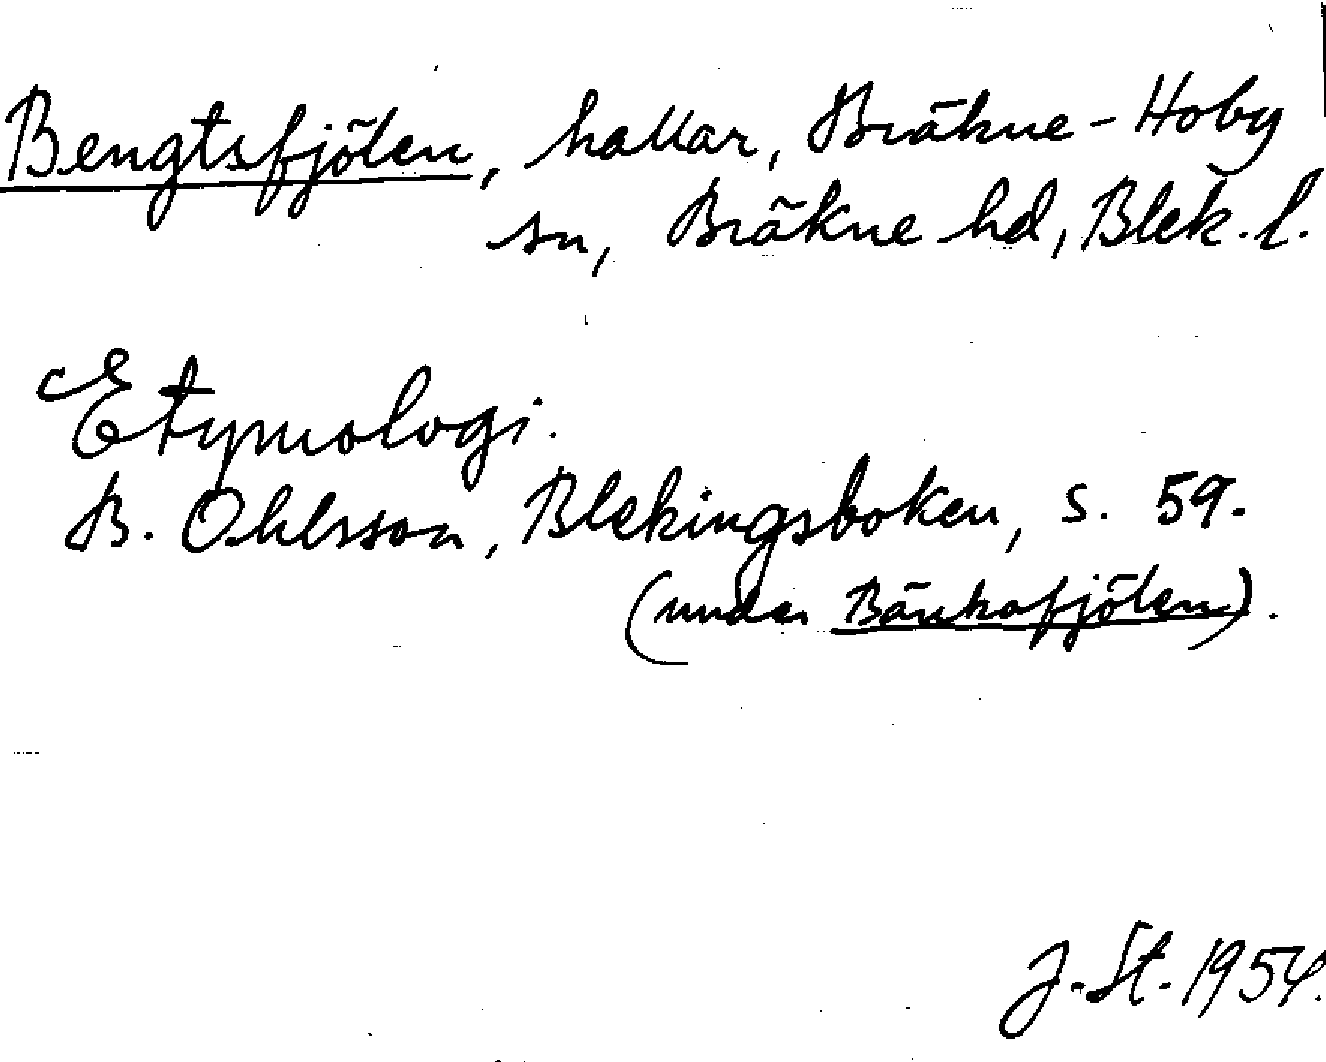 Bengtsfjölen, hallar, Bräkne-Hoby
sn, Bräkne hd, Blek. l.
Etymologi.
B. Ohlsson, Blekingsboken, s. 59.
(under Bänkafjölen).
J. St. 1954.